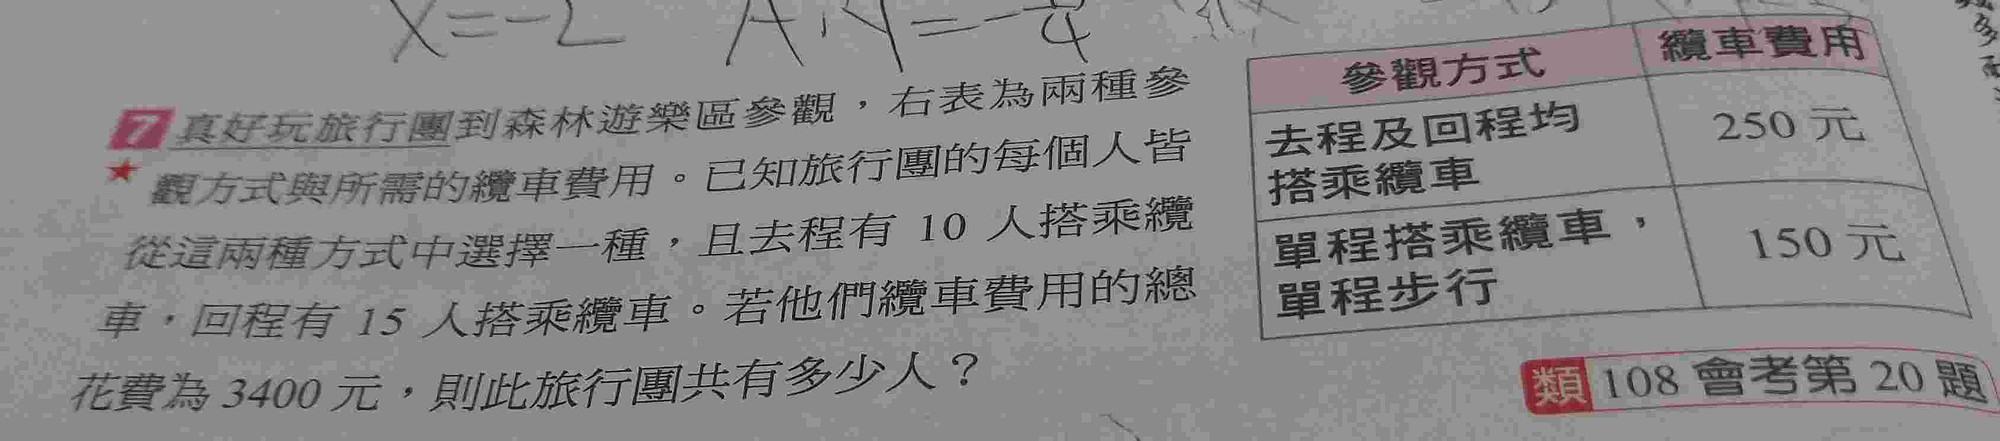 X=-2
7 真好玩旅行團到森林遊樂區參觀，右表為兩種參
★ 觀方式與所需的纜車費用。已知旅行團的每個人皆
從這兩種方式中選擇一種，且去程有 10 人搭乘纜
車，回程有 15 人搭乘纜車。若他們纜車費用的總
花費為 3400 元，則此旅行團共有多少人？
參觀方式 纜車費用
去程及回程均
搭乘纜車
250 元
單程搭乘纜車，
單程步行
150 元
類 108 會考第 20 題